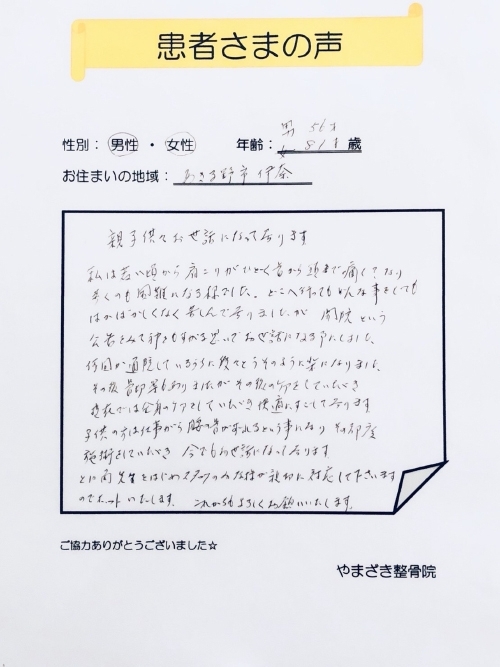 患者さまの声
性別： 男性 ・ 女性
年齢： 男 56才
女 81才 歳
お住まいの地域： あきる野市 伊奈
親子供々お世話になって居ります
私は若い頃から肩こりがひどく首から頭まで痛くなり
歩くのも困難になる様でした。どこへ行ってもどんな事をしても
はかばかしくなく苦しんで居りましたが 開院という
広告をみて神をもすがる思いでお世話になる事にしました。
何回か通院しているうちに段々とうそのように楽になりました。
その後 骨折等もありましたが その後のケアをしていただき
現在では全身のケアをしていただき快適にすごして居ります
子供の方は仕事がら腰の骨がずれるという事になり その都度
施術をしていただき 今でもお世話になっております
とに角先生をはじめスタッフのみな様が親切に対応して下さいます
のでホットいたします。 これからもよろしくお願いいたします。
ご協力ありがとうございました☆
やまざき整骨院